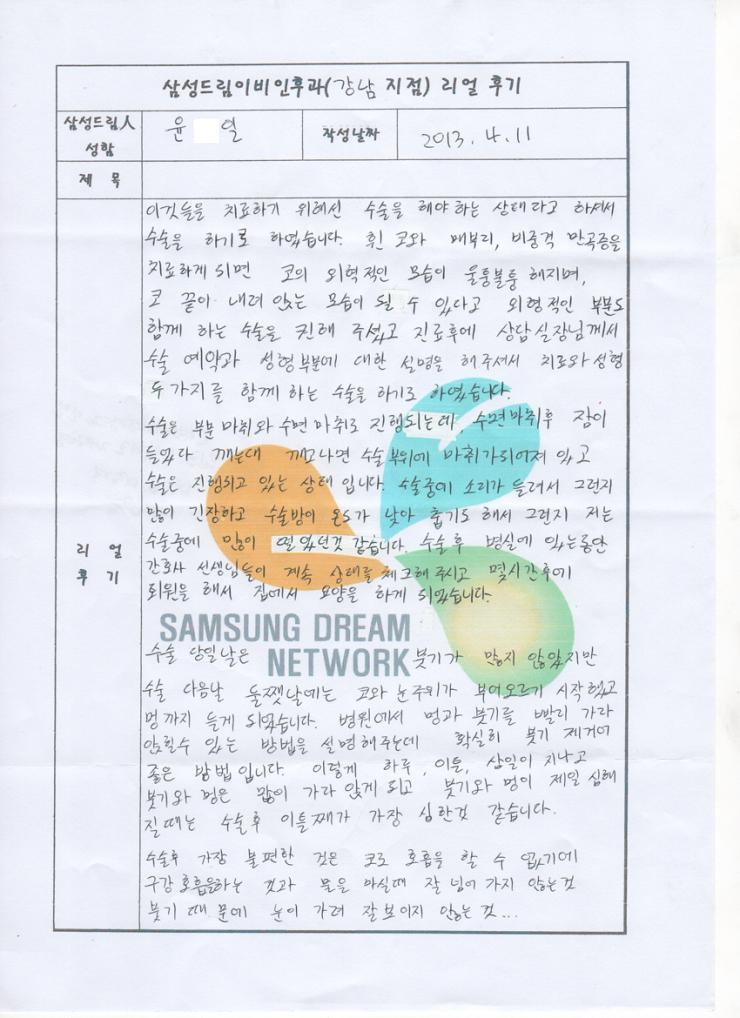 삼성드림이비인후과(강남 지점) 리얼 후기
삼성드림人 성함
윤 일
작성날짜
2013. 4. 11
제 목
리 얼 후 기
이것들을 치료하기 위해선 수술을 해야하는 상태라고 하셔서
수술을 하기로 하였습니다. 휜 코와 매부리, 비중격 만곡증을
치료하게 되면 코의 외형적인 모습이 울퉁불퉁 해지며,
코 끝이 내려 앉는 모습이 될 수 있다고 외형적인 부분도
함께 하는 수술을 권해 주셨고 진료후에 상담실장님께서
수술 예약과 성형부분에 대한 설명을 해주셔서 치료와 성형
두가지를 함께 하는 수술을 하기로 하였습니다.
수술은 부분 마취와 수면 마취로 진행되는데, 수면마취후 잠이
들었다 깨는데 깨고나면 수술부위에 마취가되어져 있고
수술은 진행되고 있는 상태 입니다. 수술중에 소리가 들려서 그런지
많이 긴장하고 수술방이 온도가 낮아 춥기도 해서 그런지 저는
수술중에 많이 떨었던것 같습니다. 수술후 병실에 있는동안
간호사 선생님들이 계속 상태를 체크해 주시고 몇시간후에
퇴원을 해서 집에서 요양을 하게 되었습니다.
SAMSUNG DREAM
NETWORK
수술 당일날은 붓기가 많지 않았지만
수술 다음날 둘쨋날에는 코와 눈주위가 부어오르기 시작했고
멍까지 들게 되었습니다. 병원에서 멍과 붓기를 빨리 가라
앉힐수 있는 방법을 설명해주는데 확실히 붓기 제거에
좋은 방법입니다. 이렇게 하루, 이틀, 삼일이 지나고
붓기와 멍은 많이 가라 앉게 되고 붓기와 멍이 제일 심해
질때는 수술후 이틀째가 가장 심한것 같습니다.
수술후 가장 불편한 것은 코로 호흡을 할 수 없기에
구강호흡을하는 것과 물을 마실때 잘 넘어 가지 않는것
붓기 때문에 눈이 가려 잘보이지 않는 것...